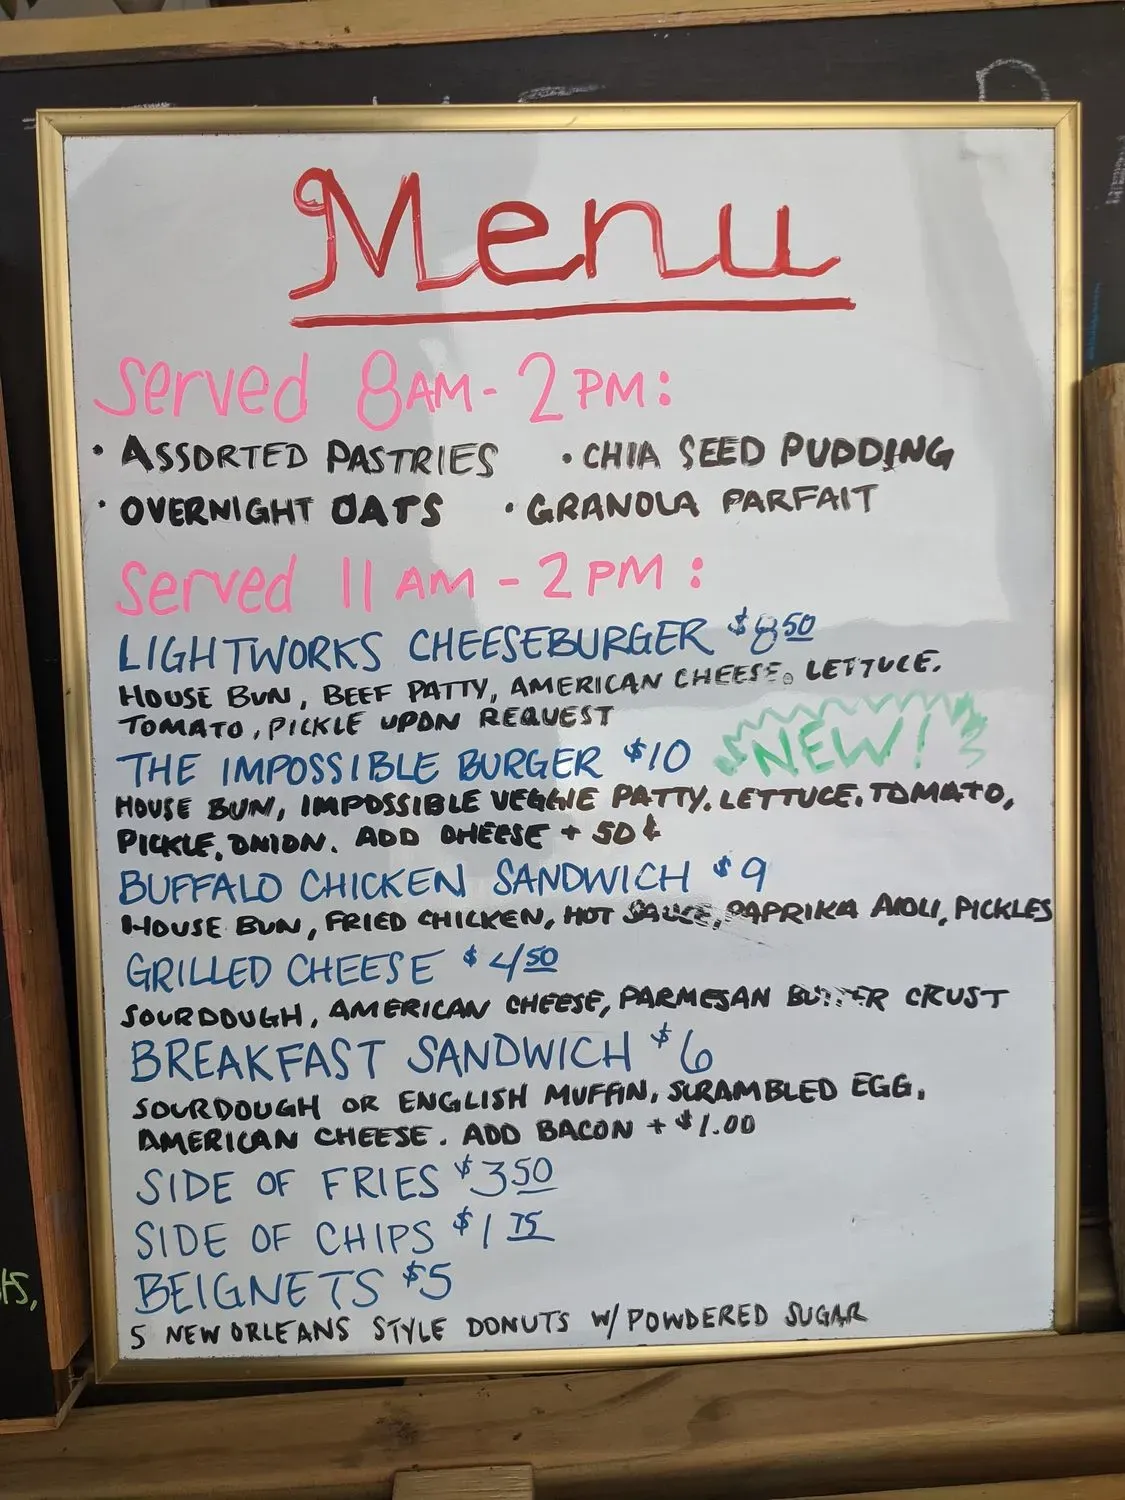 Menu
Served 8AM - 2PM:
· ASSORTED PASTRIES · CHIA SEED PUDDING
· OVERNIGHT OATS · GRANOLA PARFAIT
Served 11AM - 2PM:
LIGHTWORKS CHEESEBURGER $8.50
HOUSE BUN, BEEF PATTY, AMERICAN CHEESE. LETTUCE.
TOMATO, PICKLE UPON REQUEST
THE IMPOSSIBLE BURGER $10 NEW!
HOUSE BUN, IMPOSSIBLE VEGGIE PATTY. LETTUCE. TOMATO,
PICKLE, ONION. ADD CHEESE + 50¢
BUFFALO CHICKEN SANDWICH $9
HOUSE BUN, FRIED CHICKEN, HOT SAUCE, PAPRIKA AIOLI, PICKLES
GRILLED CHEESE $4.50
SOURDOUGH, AMERICAN CHEESE, PARMESAN BUTTER CRUST
BREAKFAST SANDWICH $6
SOURDOUGH OR ENGLISH MUFFIN, SCRAMBLED EGG,
AMERICAN CHEESE. ADD BACON + $1.00
SIDE OF FRIES $3.50
SIDE OF CHIPS $1.75
BEIGNETS $5
5 NEW ORLEANS STYLE DONUTS W/ POWDERED SUGAR